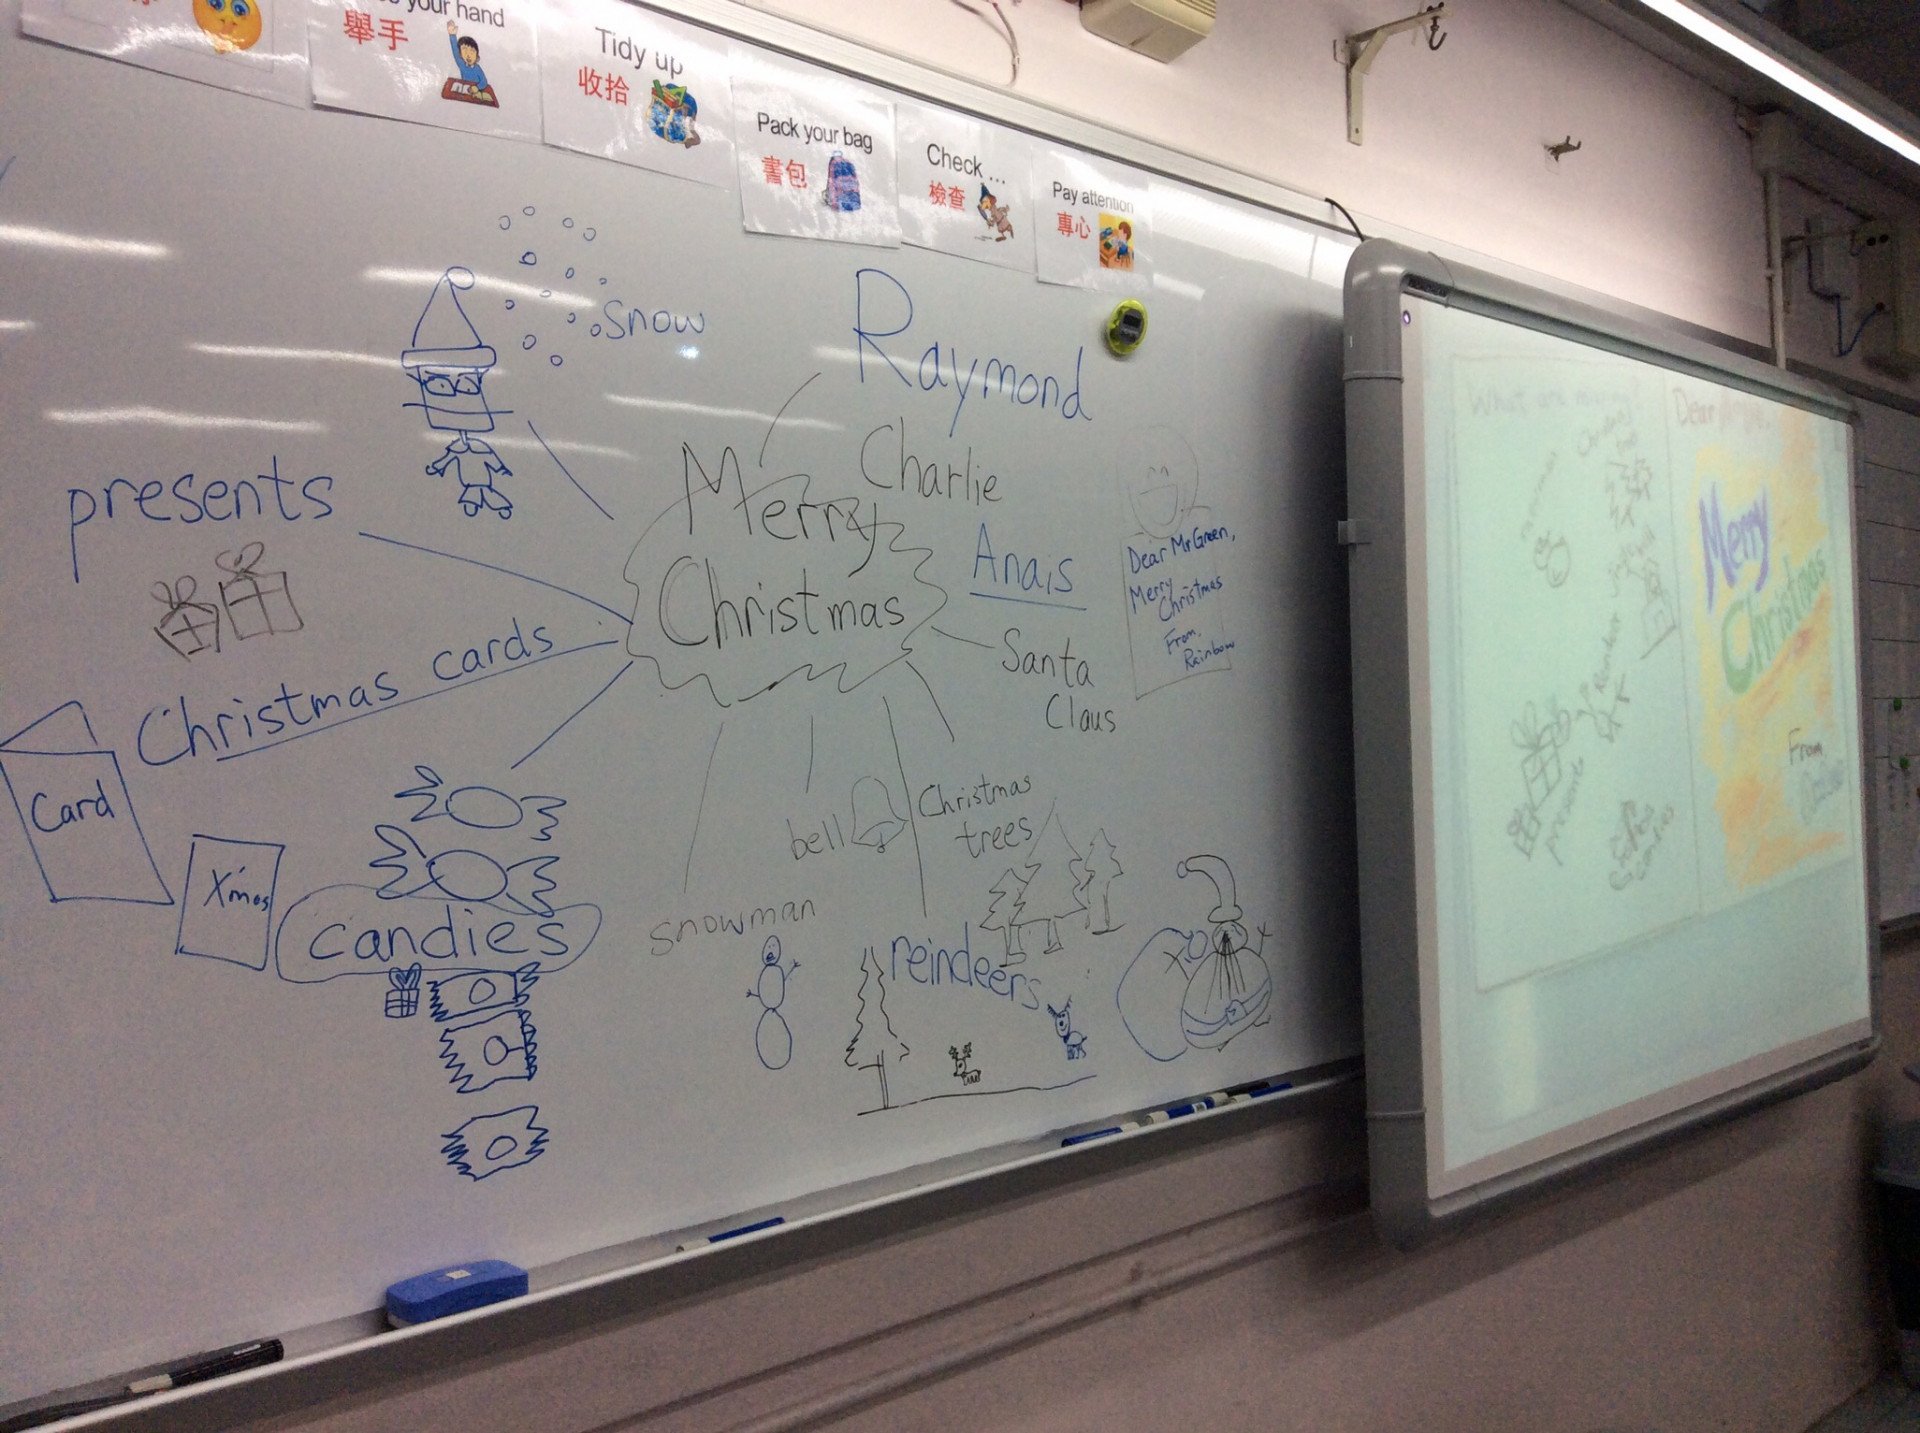 your hand
舉手
Tidy up
收拾
Pack your bag
書包
Check ...
檢查
Pay attention
專心
snow
Raymond
Charlie
Anais
presents
Merry
Christmas
Dear Mr Green,
Merry
Christmas
From,
Rainbow
Santa
Claus
Christmas cards
Card
X'mas
candies
bell
Christmas
trees
snowman
reindeers
What are
Dear
Merry
Christmas
From,
presents
candies